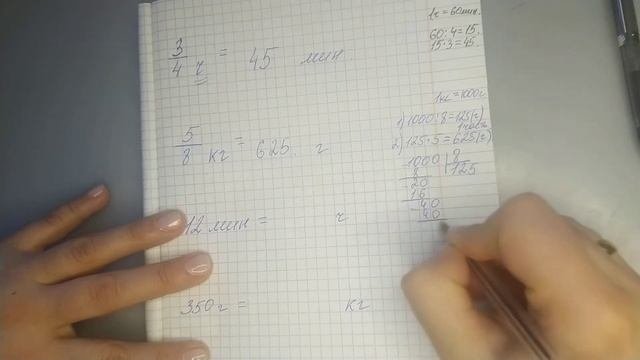 1ч = 60 мин.
60 : 4 = 15.
15 · 3 = 45.
3/4 ч = 45 мин.
1кг = 1000г
1) 1000 : 8 = 125 (г)
1 часть
5/8 кг = 625 г
2) 125 · 5 = 625 (г)
1000 | 8
8 125
20
16
40
40
12 мин = ч
350 г = кг